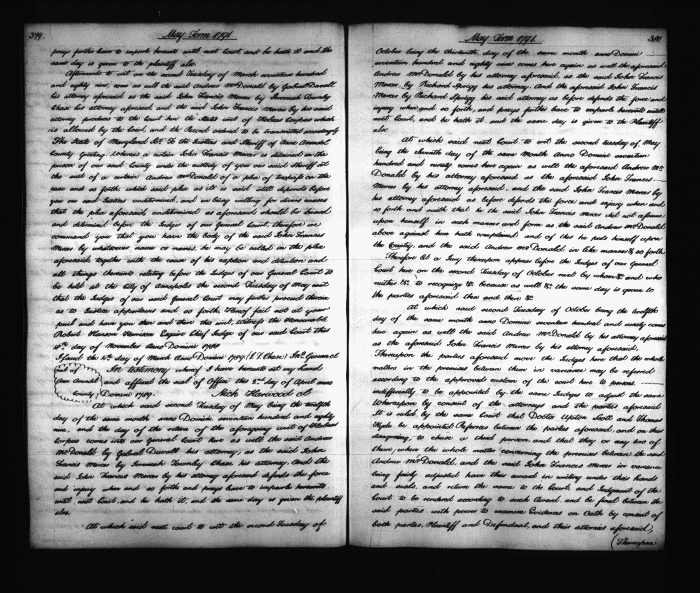 379.
May Term 1791
prays further leave to imparl hereunto until next Court, and he hath it and the
same day is given to the plaintiff also.
Afterwards to wit on the second Tuesday of March seventeen hundred
and eighty nine, came as well the said Andrew McDonald by Gabriel Duvall
his attorney aforesaid as the said John Francis Mercer by Jeremiah Townley
Chase his attorney aforesaid and the said John Francis Mercer by his said
attorney produces to the Court here the State's writ of Habeas Corpus which
is allowed by the Court, and the Record ordered to be transmitted accordingly
The State of Maryland Sc. To the Justices and Sheriff of Ann Arundel
County Greeting whereas a certain John Francis Mercer is detained in the
prison of our said County under the custody of you our said Sheriff at
the suit of a certain Andrew McDonald of a plea of trespass on the
case and so forth, which said plea as it is said still depends before
you our said Justices undetermined, and we being willing for divers causes
that the plea aforesaid undetermined as aforesaid should be heard
and determined before the Judges of our General Court, therefore we
command you that you have the body of the said John Francis
Mercer by whatsoever name or names he may be called in the plea
aforesaid, together with the cause of his caption and detention and
all things thereunto relating before the Judges of our General Court to
be held at the City of Annapolis the second Tuesday of May next
that the Judges of our said General Court may further proceed therein
as to Justice appertains and so forth, Hereof fail not at your
peril and have you then and there this writ, Witness the Honourable
Robert Hanson Harrison Esquire Chief Judge of our said Court this
day of November Anno Domini 1788
Issued the 4th. day of March Anno Domini 1789
In testimony whereof I have hereunto set my hand
Ann Arundel
and affixed the seal of Office this 2d. day of April anno
County
Domini 1789.
Nich Harwood Cl
At which said second Tuesday of May being the twelfth
day of the same month anno Domini seventeen hundred and eighty
nine, and the day of the return of the aforegoing writ of Habeas
Corpus comes into our General Court here as well the said Andrew
McDonald by Gabriel Duvall his attorney, as the said John
Francis Mercer by Jeremiah Townley Chase his attorney, And the
said John Francis Mercer by his attorney aforesaid defends the force
and injury when and so forth and prays leave to imparle hereunto
until next Court, and he hath it, and the same day is given the plaintiff
also.
At which said next court to wit the second Tuesday of
380.
May Term 1791.
October being the thirteenth day of the same month anno Domini
seventeen hundred and eighty nine comes here again as well the aforesaid
Andrew McDonald by his attorney aforesaid, as the said John Francis
Mercer by Richard Sprigg his attorney. And the aforesaid John Francis
Mercer by Richard Sprigg his said attorney as before defends the force and
injury when and so forth, and prays further leave to imparl hereunto until
next Court, and he hath it, and the same day is given to the Plaintiff
also
At which said next Court to wit the second Tuesday of May
being the eleventh day of the same Month Anno Domini seventeen
hundred and ninety comes here again as well the aforesaid Andrew Mc
Donald by his attorney aforesaid as the aforesaid John Francis
Mercer by his attorney aforesaid, and the said John Frances Mercer by
his attorney aforesaid as before defends the force and injury when and
so forth and saith that he the said John Francis Mercer did not assume
upon himself in such manner and form as the said Andrew McDonald
above against him hath complained and of this he puts himself upon
the County, and the said Andrew McDonald in like manner & so forth
Therefore let a Jury thereupon appear before the Judges of our General
Court here on the second Tuesday of October next by whom &c. and who
neither &c. to recognize &c. because as well &c. the same day is given to
the parties aforesaid then and there &c.
At which said second Tuesday of October being the twelfth
day of the same month anno Domini seventeen hundred and ninety comes
here again as well the said Andrew McDonald by his attorney aforesaid
as the aforesaid John Francis Mercer by his attorney aforesaid.
Thereupon the parties aforesaid move the Judges here that the whole
matter in the premises between them in variance may be referred
according to the approved custom of the Court here to persons
indifferently to be appointed by the same Judges to adjust the same
Whereupon by consent of the attornies and the parties aforesaid
It is ruled by the same Court that Doctor Upton Scott and Thomas
Hyde be appointed Referees between the parties aforesaid, and on their
disagreeing, to chuse a third person and that they or any two of
them, when the whole matter concerning the premises between the said
Andrew McDonald, and the said John Francis Mercer in variance
being fairly adjusted have their award in writing under their hands
and seals, and return the same to the Court and Judgment of the
Court to be rendered according to such Award and be final between the
said parties with power to examine Evidences on Oath by consent of
both parties, Plaintiff and Defendant, and their attornies aforesaid,
(Thereupon